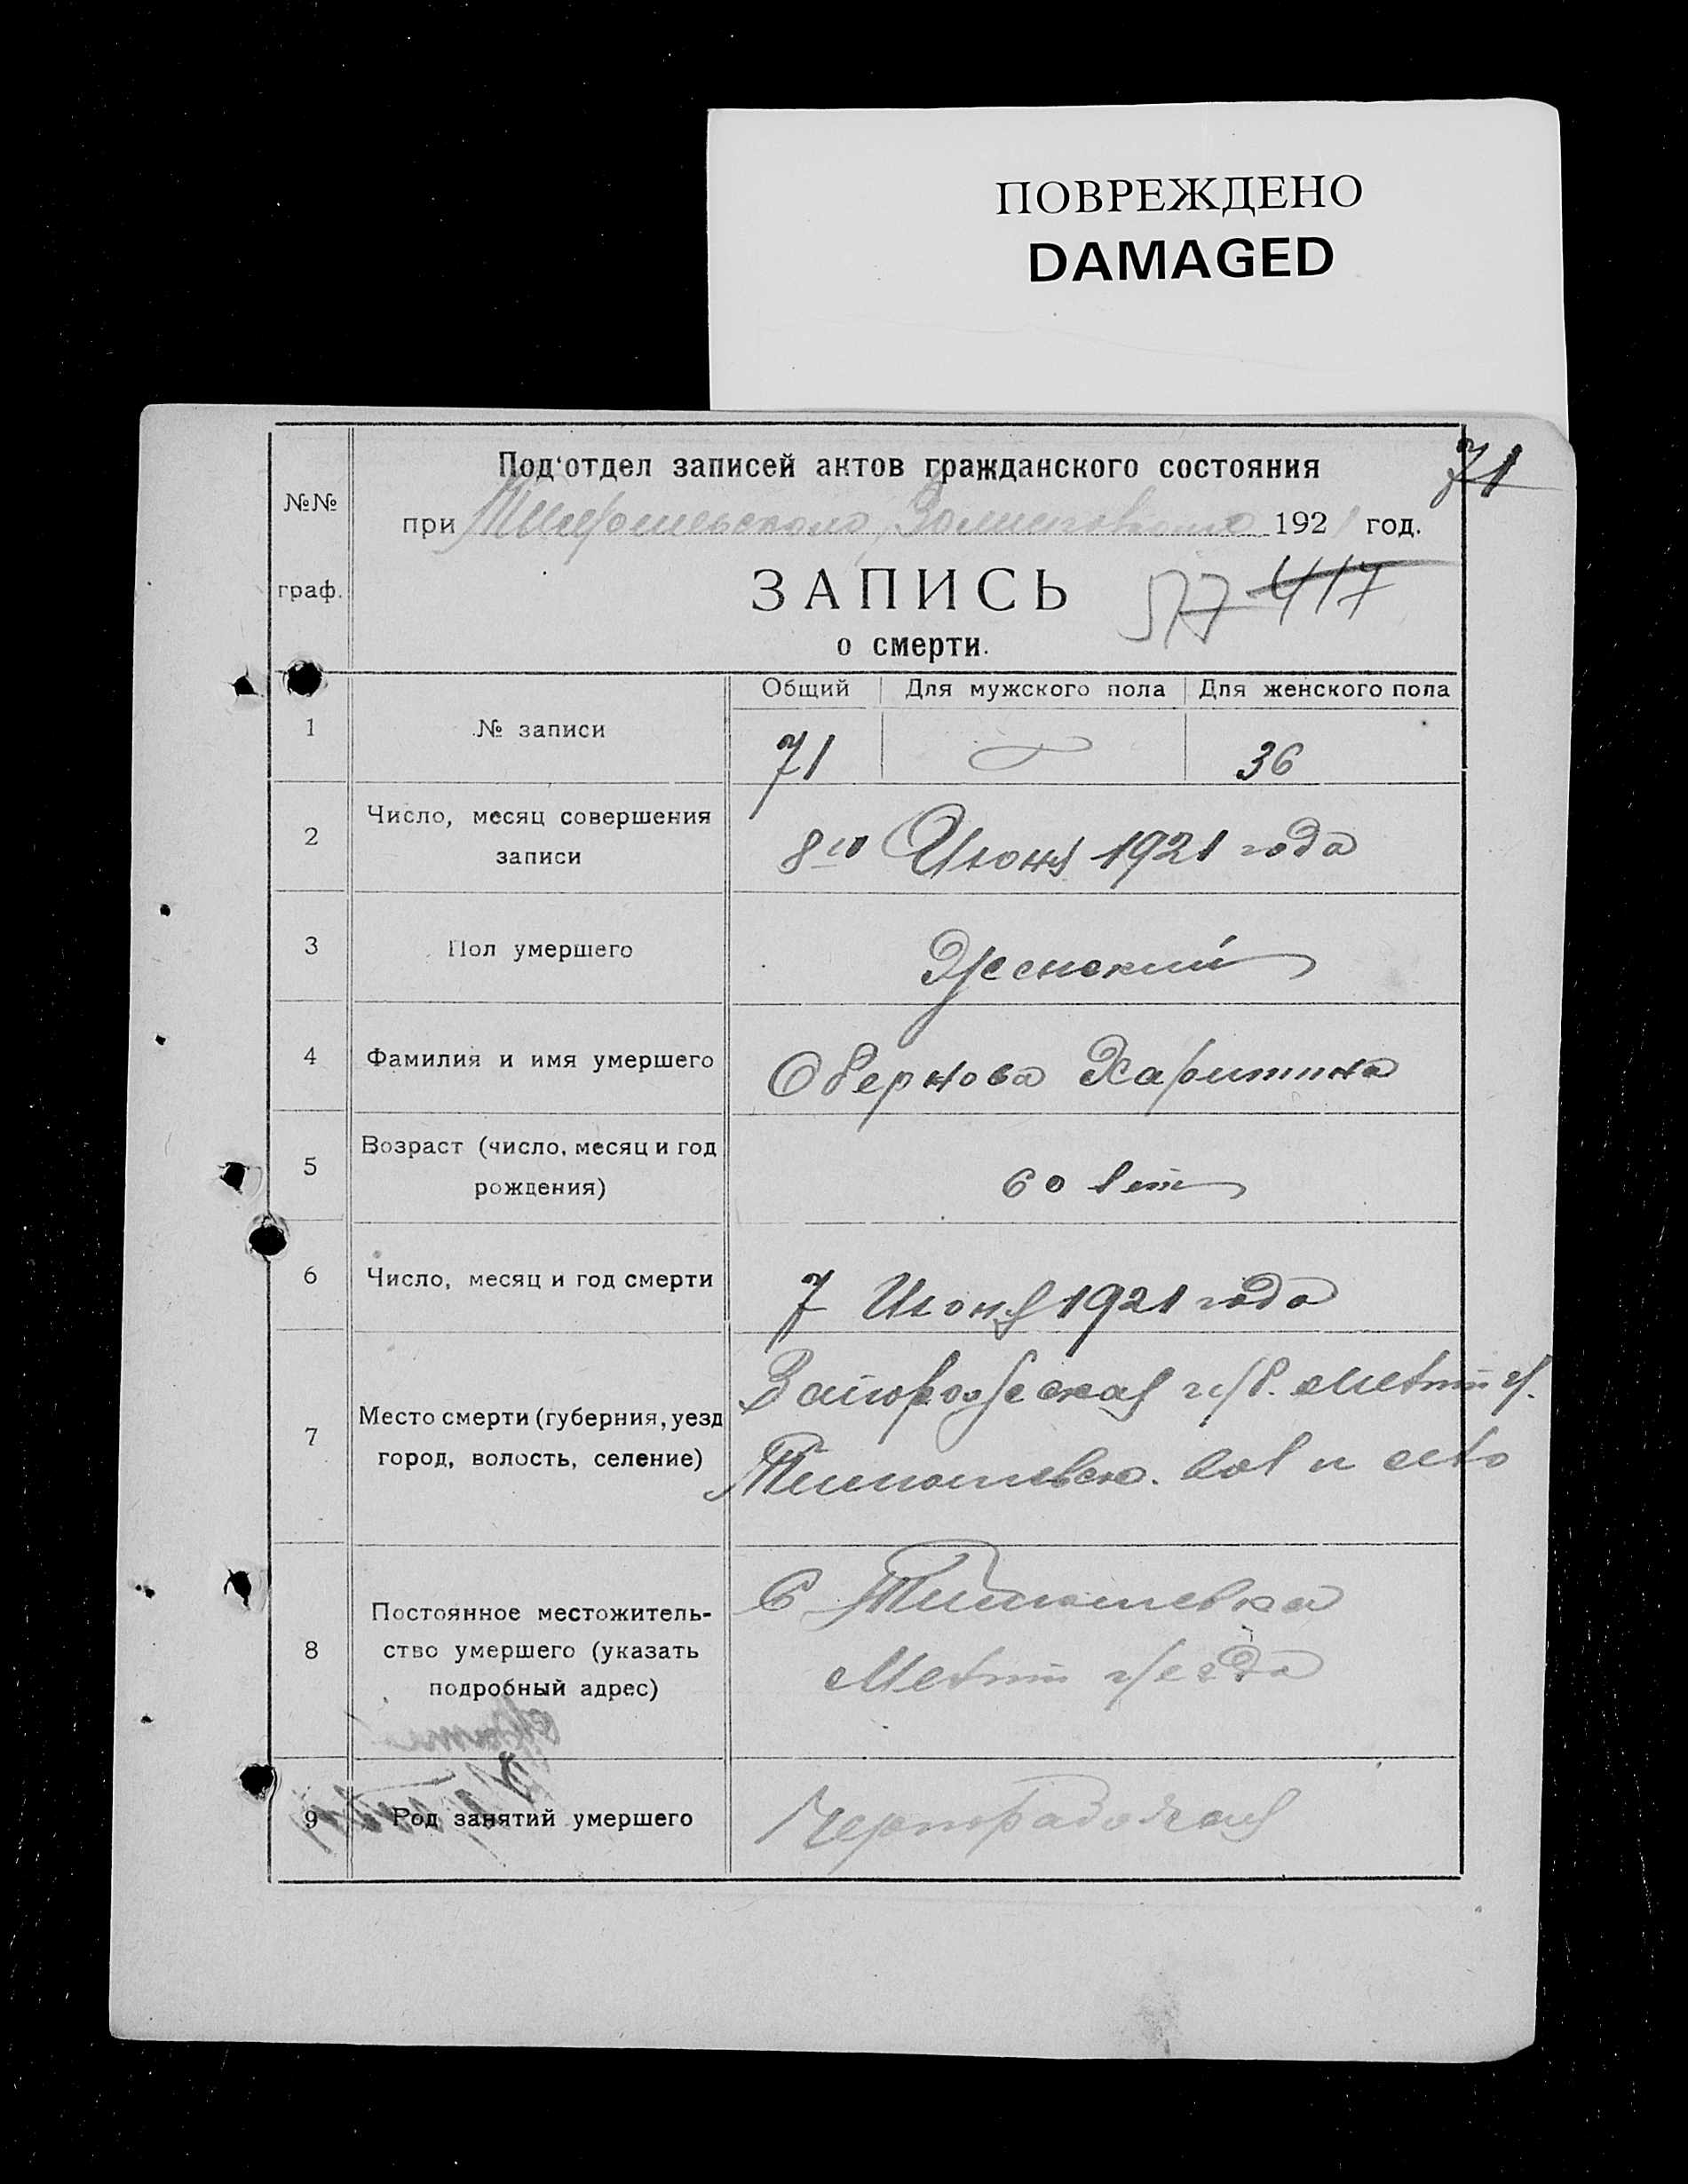 ПОВРЕЖДЕНО
DAMAGED
71
№№
граф.
Под'отдел записей актов гражданского состояния
при 1921 год.
ЗАПИСЬ
577 417
о смерти.
Общий Для мужского пола Для женского пола
1 № записи 71 36
2 Число, месяц совершения
записи
8го Июня 1921 года
3 Пол умершего Женский
4 Фамилия и имя умершего Обернова Харитина
5 Возраст (число, месяц и год
рождения)
60 лет
6 Число, месяц и год смерти 7 Июня 1921 года
7 Место смерти (губерния, уезд
город, волость, селение)
Запорожская губ. Мелит у.
Тимошевск. вол и село
8 Постоянное местожитель-
ство умершего (указать
подробный адрес)
С Тимошевка
Мелит уезда
9 Род занятий умершего